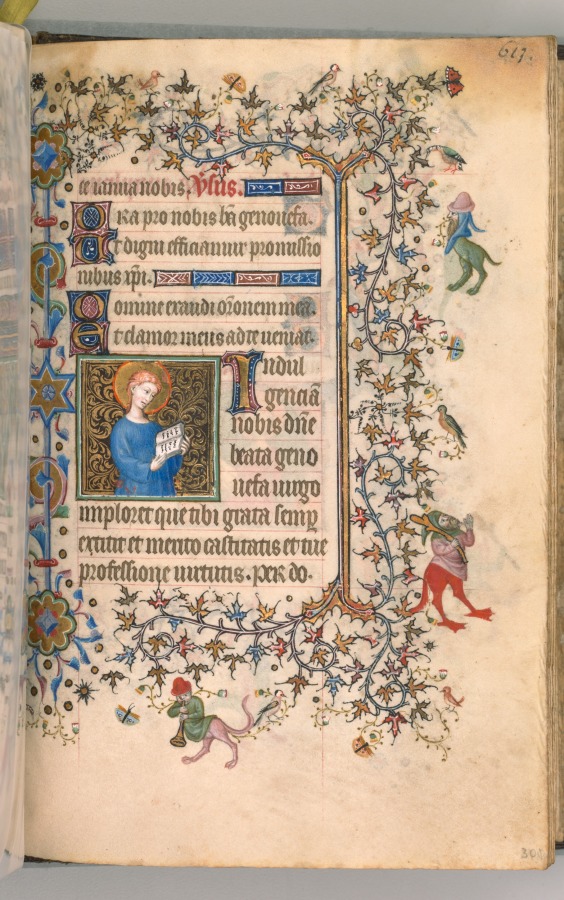 617.
te ianua nobis. Vſus.
Ora pro nobis bā genouefa.
Et digni efficiamur promiſſio
nibus xpi.
Domine exaudi orōnem meā.
Et clamor meus ad te ueniat.
Indul
genciā
nobis dn̄e
beata geno
uefa uirgo
imploret que tibi grata semp̱
extitit et merito castitatis et tue
professione uirtutis. per do.